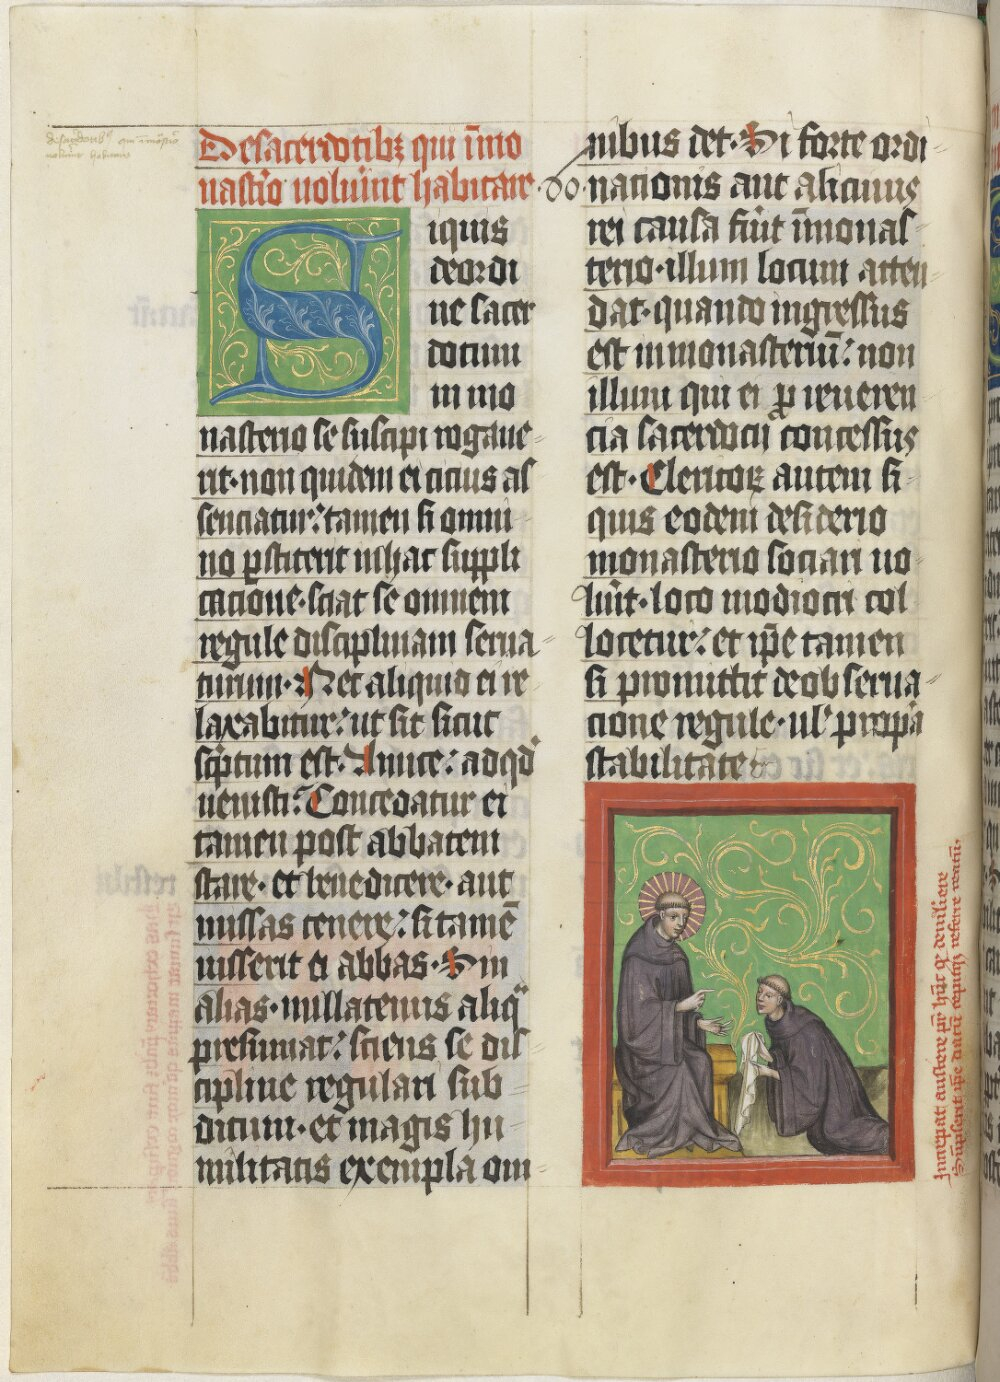 De sacerdotibꝫ qui ī mo
nasťio voluīnt habitare. 60.
Siquis
de ordi
ne sacer
dotum
in mo
nasterio se suscipi rogaue
rit· non quidem ei citius as
senciatur: tamen si omni
no ꝑstiterit in hac suppli
cacione· sciat se omnem
regule disciplinam serua
turum· Nec aliquid ei re
laxabitur: ut sit sicut
sc̄ptum est· Amice: ad qđ
uenisti? Concedatur ei
tamen post abbatem
stare· et benedicere· aut
missas tenere: si tamē
iusserit ei abbas· Sin
alias· nullatenus aliqͣ
presumat: sciens se dis
cipline regulari sub
ditum· et magis hu
militatis exempla om
nibus det· Si forte ordi
nationis aut alicuius
rei causa fūit in monas
terio· illum locum atten
dat· quando ingressus
est in monasteriū: non
illum qui ei ꝓ reueren
cia sacerdocij concessus
est· Clericoꝝ autem si
quis eodem desiderio
monasterio sociari uo
lūit· loco mediocri col
locetur: et ip̄e tamen
si promittit de obserua
cione regule· ul' prop̄a
stabilitate
Increpat austere